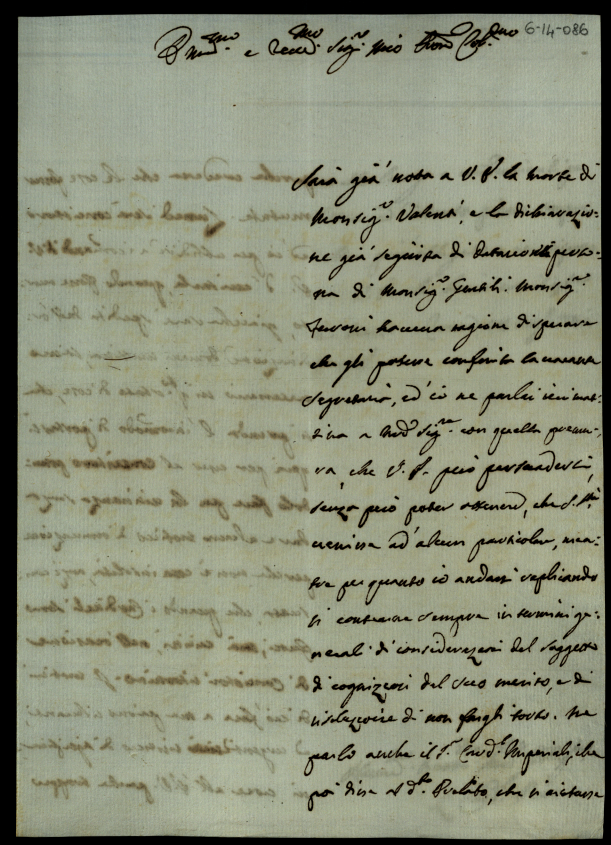 6-14-086
e Sig.r mio
Sarà già nota a V. P. la morte di
Monsig.r Valenti, e la dichiarazio-
ne già seguita di perso-
na di Monsig.r Gentili. Monsig.r
haveva ragione di sperare
che gli potesse conferita la vacante
segretaria, ed io ne parlai ieri mat-
tina a N.ro Sig.re con quella premu-
ra, che V. P. può persuadersi,
senza però poter ottenere, che S. S.tà
venisse ad alcun particolare, men-
tre per quanto io andassi replicando
si contenne sempre in termini ge-
nerali di considerazioni del soggetto
di cognizioni del suo merito, e di
di non fargli torto. Ne
parlò anche il S.r Card.l Imperiali, che
poi disse al d.to Prelato, che si